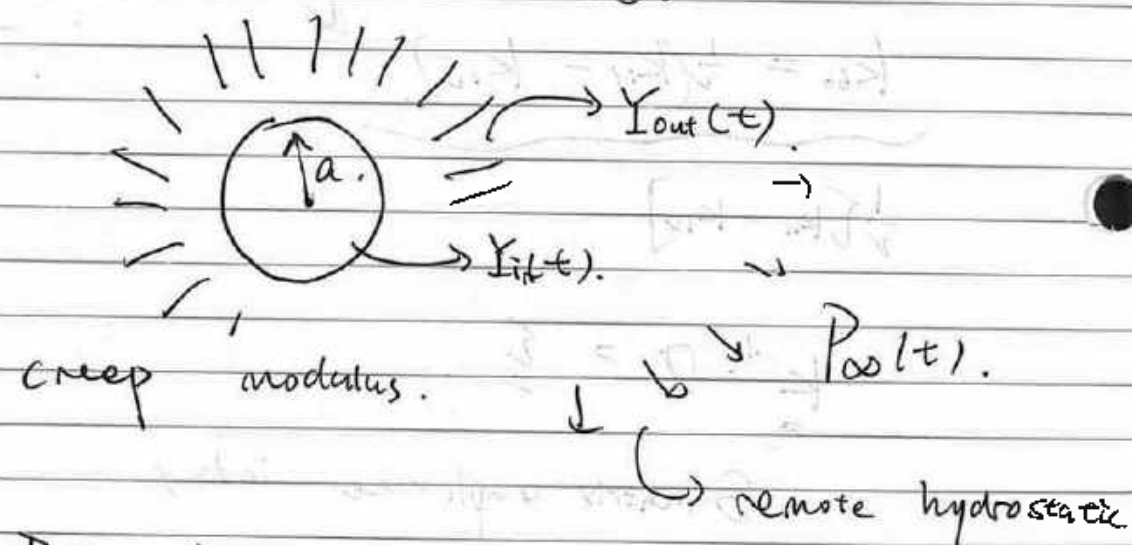 Yout(t).
a.
Yin(t).
P∞(t).
creep modulus.
remote hydrostatic